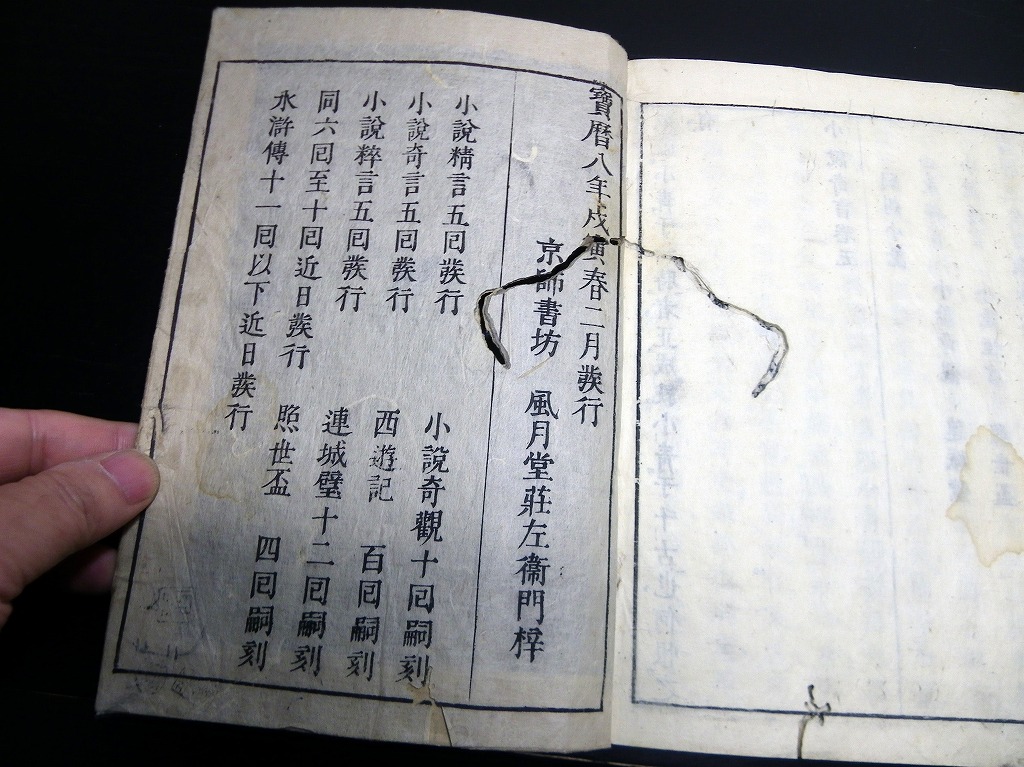 寶曆八年戊寅春二月發行
京師書坊 風月堂莊左衞門梓
小說精言五囘發行
小說奇言五囘發行
小說粹言五囘發行
同六囘至十囘近日發行
水滸傳十一囘以下近日發行
小說奇觀十囘嗣刻
西遊記 百囘嗣刻
連城璧十二囘嗣刻
照世盃 四囘嗣刻